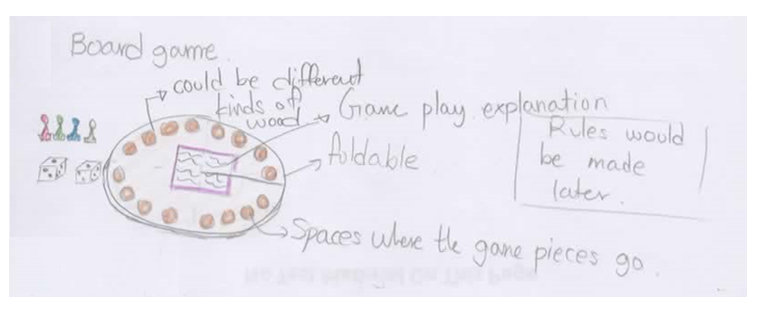 Board game.
could be different
kinds of
wood
Game play explanation
foldable
Rules would
be made
later.
Spaces where the game pieces go.
No Test Material On This Page